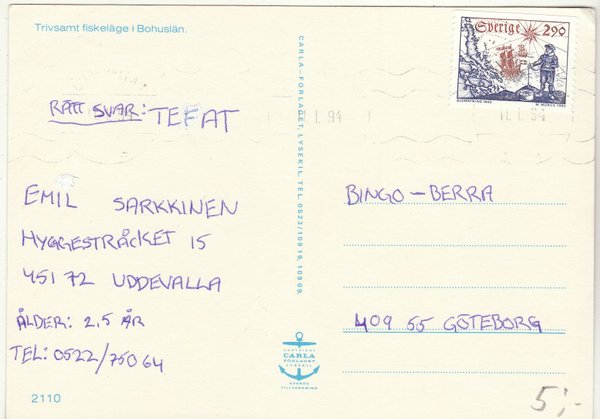 Trivsamt fiskeläge i Bohuslän.
RÄTT SVAR: TEFAT
EMIL SARKKINEN
HYGGESTRÅCKET 15
451 72 UDDEVALLA
ÅLDER: 2,5 ÅR
TEL: 0522/750 64
2110
CARLA-FÖRLAGET, LYSEKIL. TEL. 0523/109 19, 109 09.
COPYRIGHT
CARLA
FÖRLAGET
LYSEKIL
SVENSK
TILLVERKNING
Sverige 290
SJÖMÄTNING 1643
M. MÖRCK
1.94
11.1.94
BINGO-BERRA
409 55 GÖTEBORG
5:-